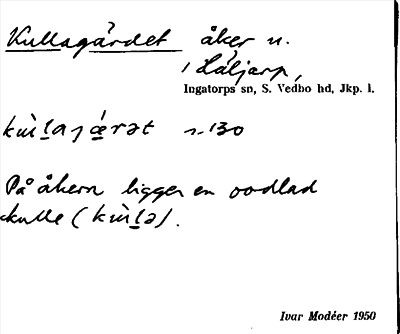 Kullagärdet åker n.
i Häljarp,
Ingatorps sn, S. Vedbo hd, Jkp. l.
s. 130
På åkern ligger en oodlad
kulle
Ivar Modéer 1950